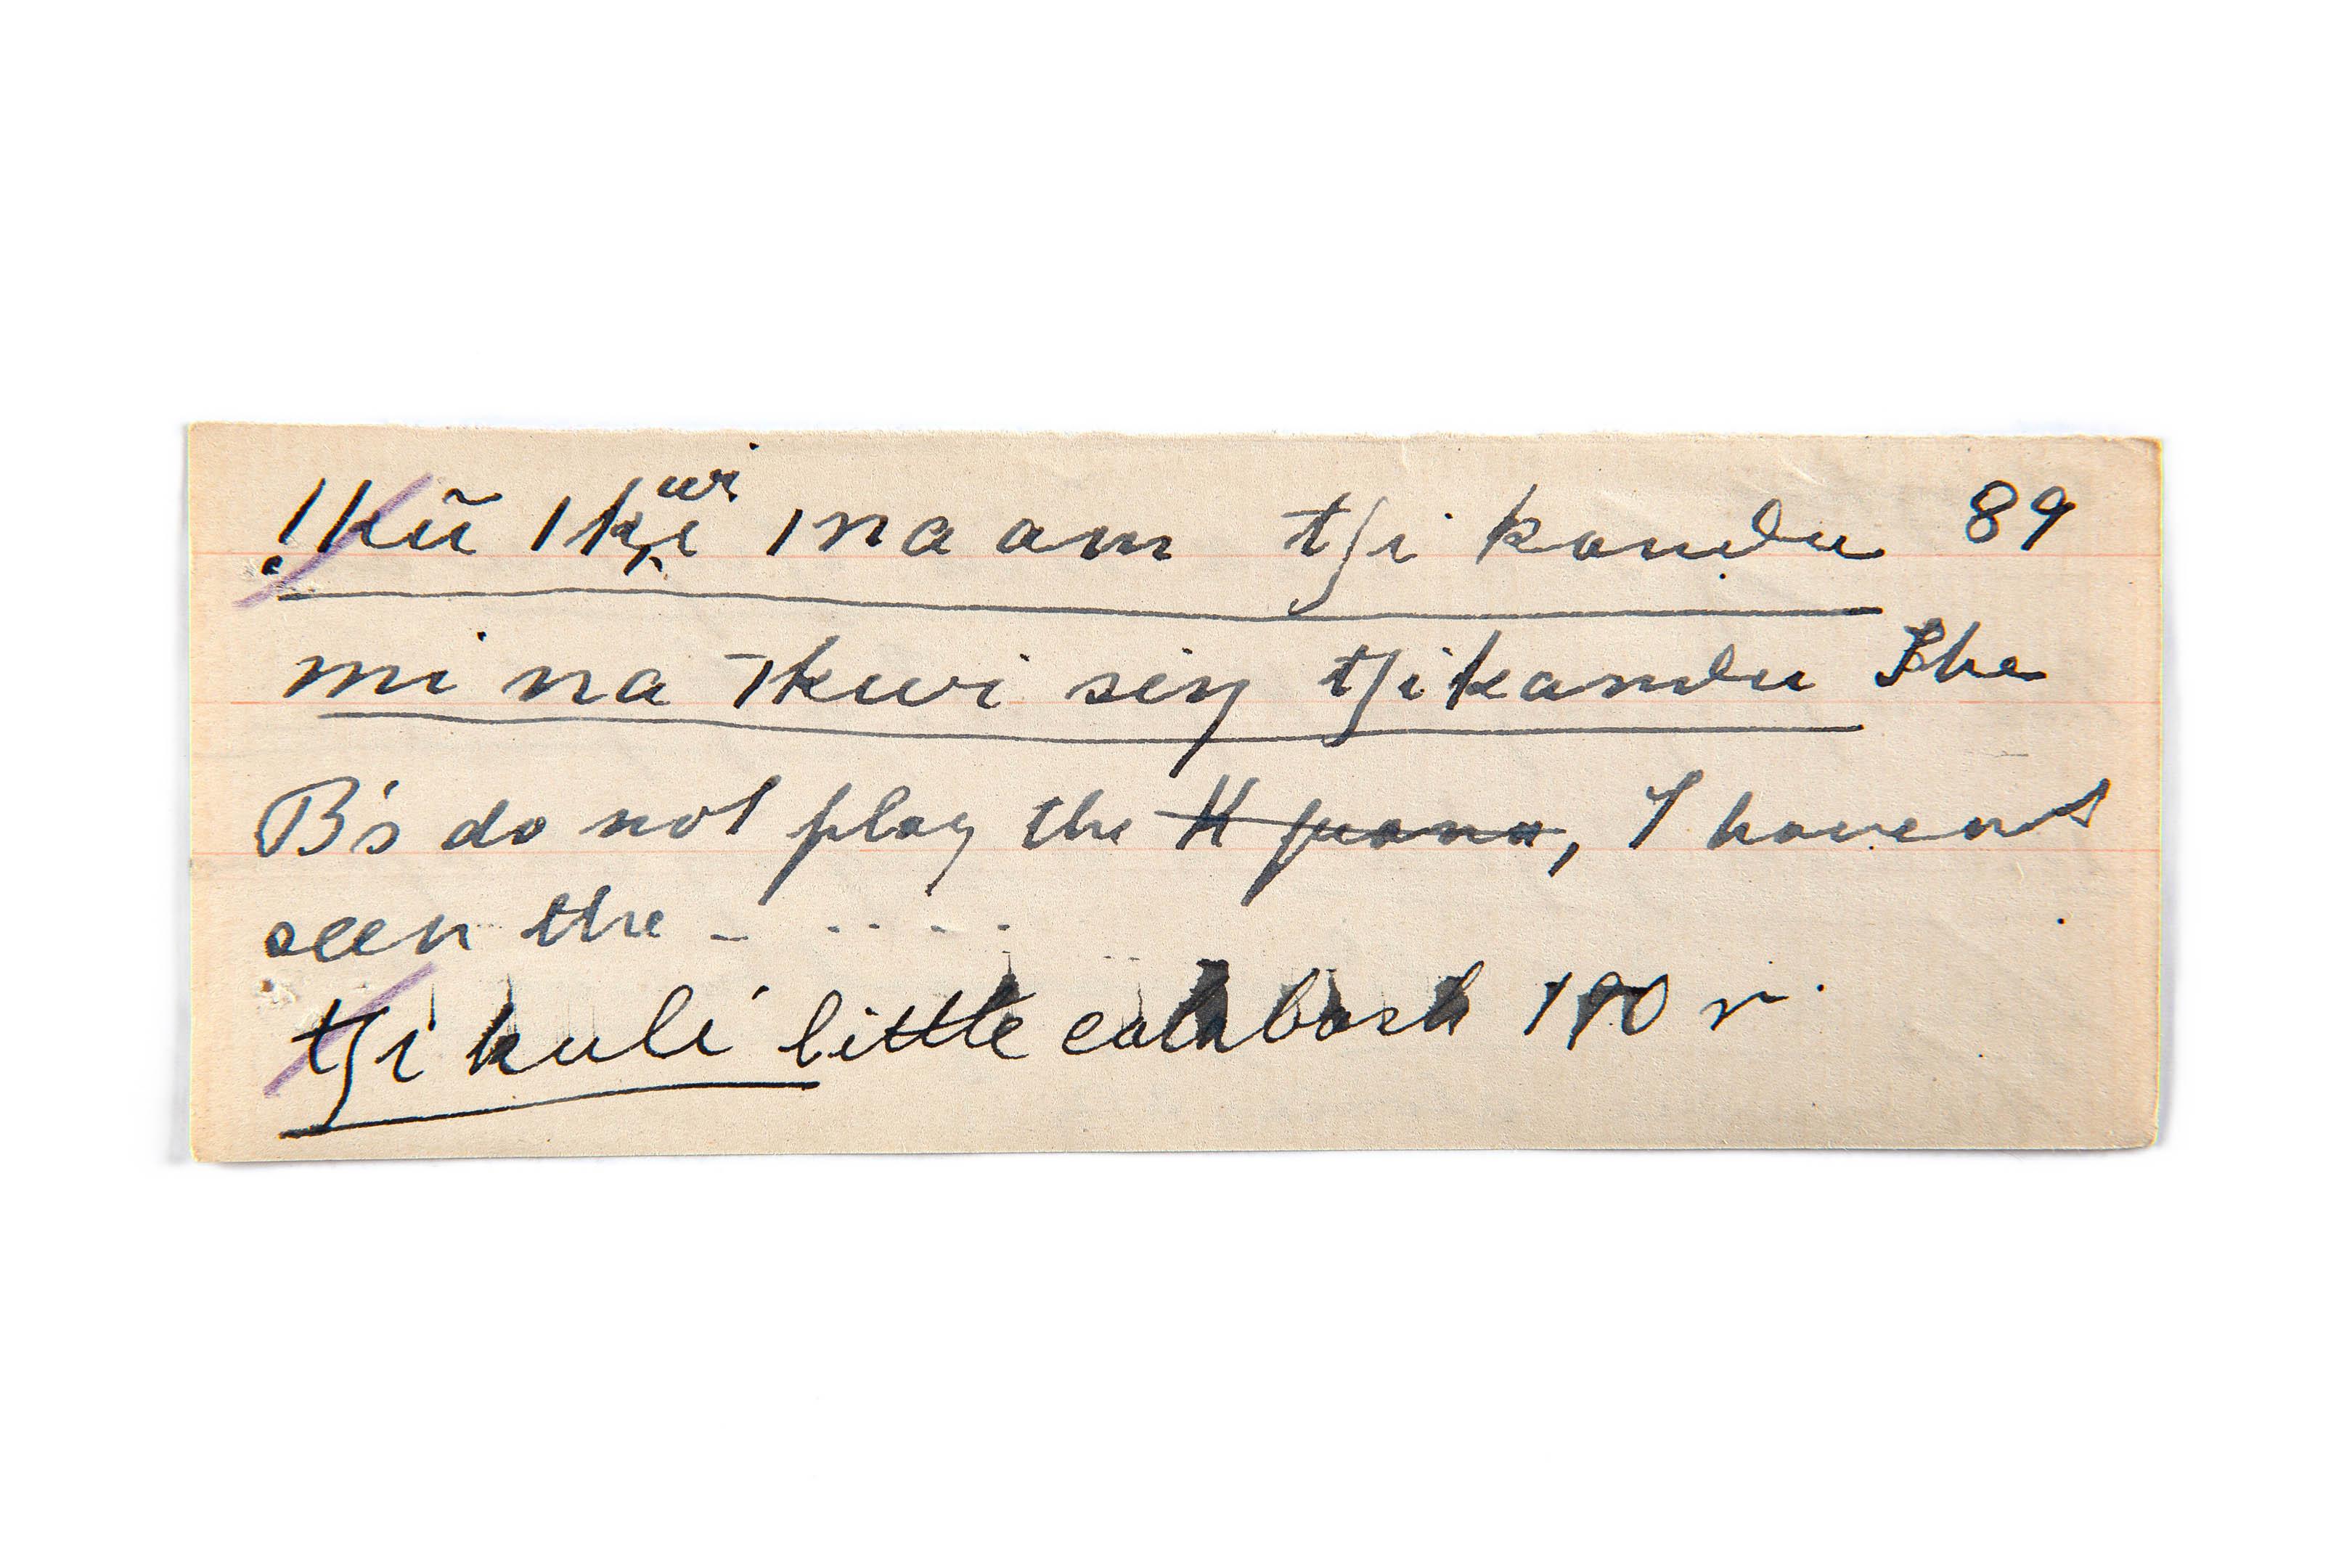 !kũ /kwi /na am tʃi kandu 89
mi na /kwi siŋ tʃikandu The
B's do not play the K piano, I havent
seen the - . . . .
tʃi kuli little calabash 190 r.